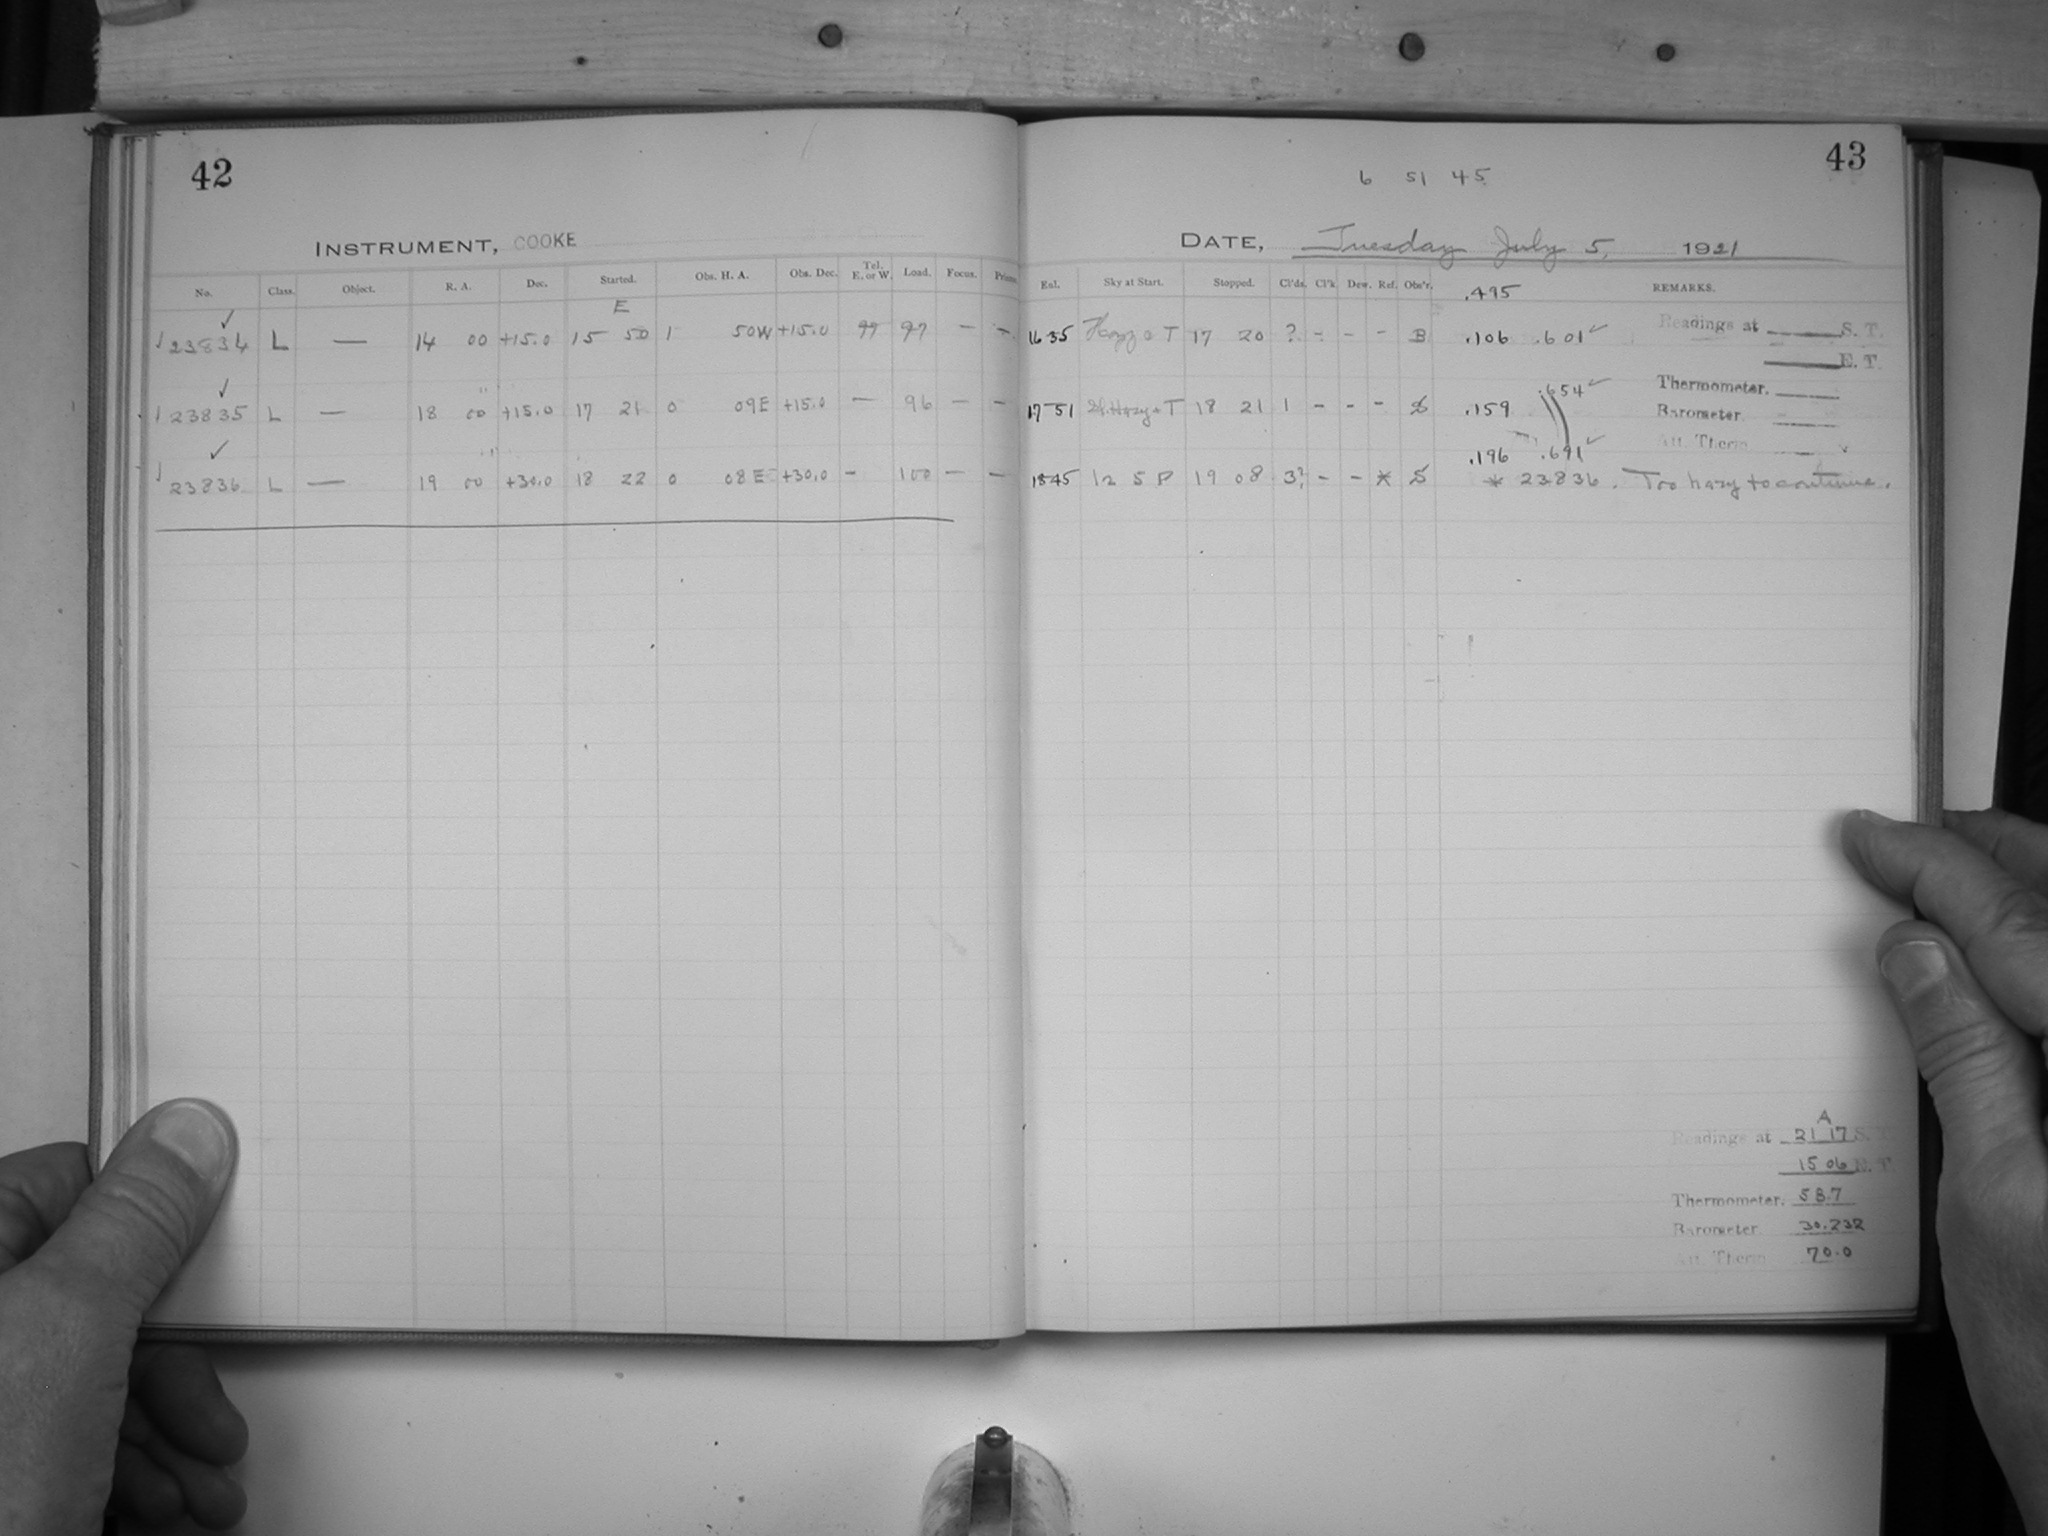 42
INSTRUMENT, COOKE
No. Class. Object. R. A. Dec. Started. Obs. H. A. Obs. Dec. Tel. E. or W. Load. Focus.
E
23834 L — 14 00 +15.0 15 50 1 50W +15.0 97 97 — —
23835 L — 18 00 +15.0 17 21 0 09E +15.0 — 96 — —
23836 L — 19 00 +30.0 18 22 0 08E +30.0 — 100 — —
43
6 51 45
DATE, Tuesday July 5, 1921
Sky at Start. Stopped. Cl'ds. Cl'k Dew. Ref. Obs'r. .495 REMARKS.
16 35 T 17 20 ? - - - B .106 .601 ✓
Readings at S. T.
E. T.
Thermometer.
Barometer
Att. Therm
17 51 T 18 21 1 - - - .159 .654 ✓
.196 .691 ✓
18 45 12 5 P 19 08 3? - - * * 23836. Too hazy to continue.
A
Readings at 21 17 S. T.
15 06 E. T.
Thermometer. 58.7
Barometer 30.232
Att. Therm 70.0